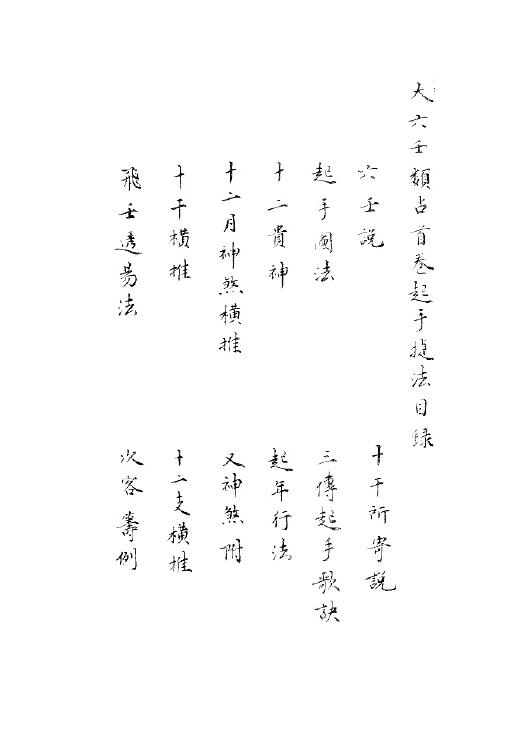 大六壬類占首卷起手捷法目録
六壬説
十干所寄説
起手圖法
三傳起手歌訣
十二貴神
起年行法
十二月神煞橫推
又神煞附
十干橫推
十二支橫推
飛壬透易法
次客籌例